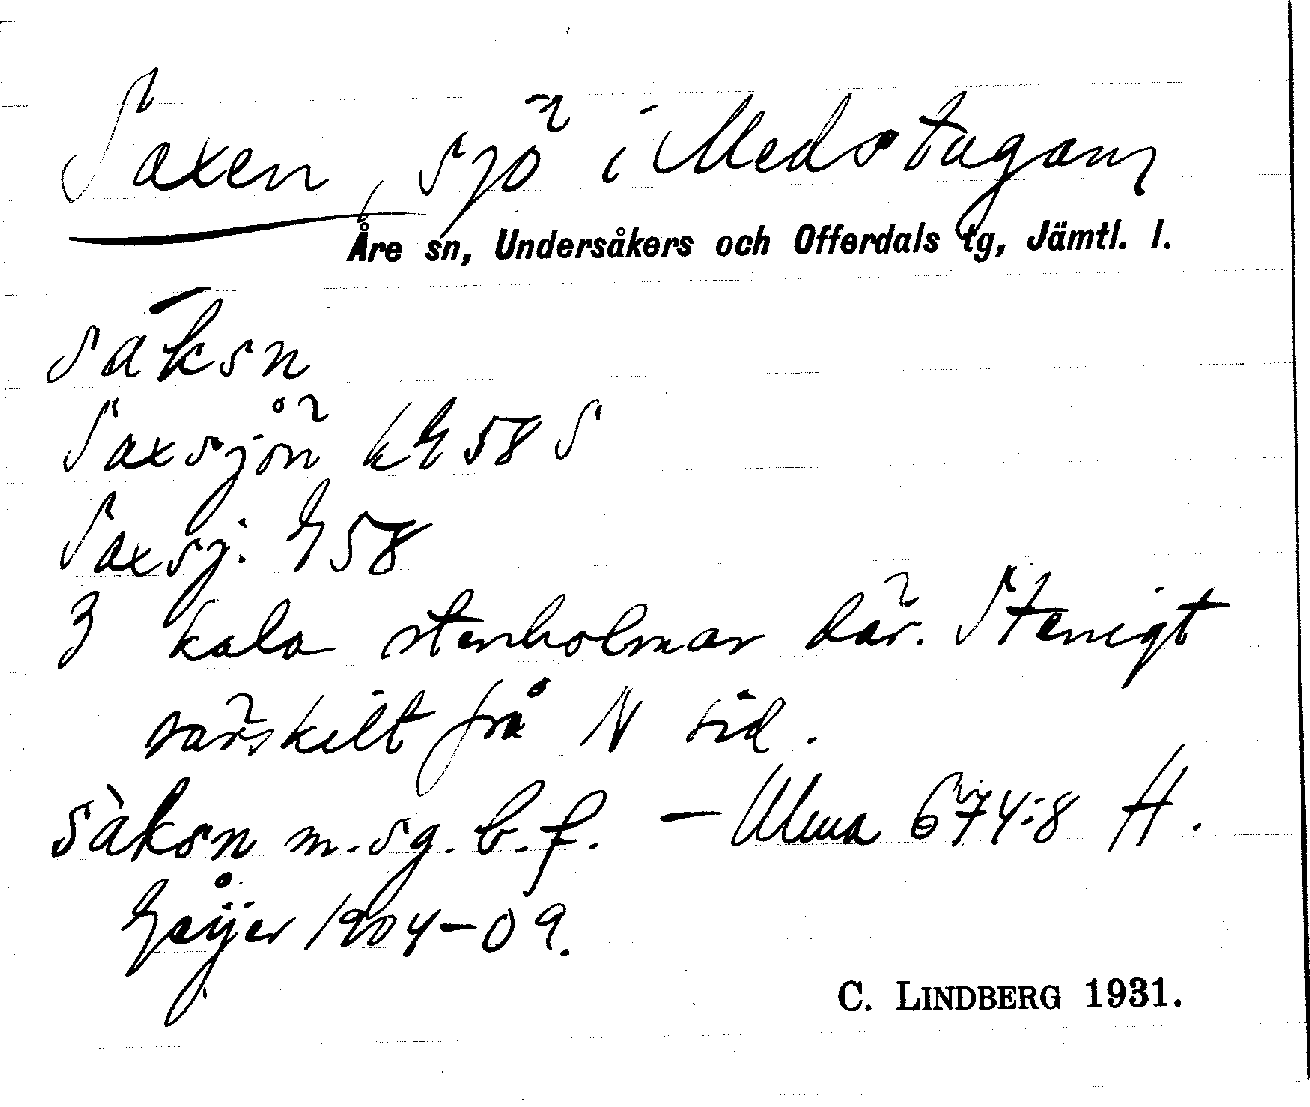 Saxen, sjö i Medstugan,
Åre sn, Undersåkers och Offerdals tg, Jämtl. l.
sáksn
Saxsjön kE 58 S
Saxsj. E 58
3 kala stenholmar där. Stenigt
särskilt frå N sid.
sàksn m. sg. b. f. – Ulma 674:8 H.
Geijer 1904–09.
C. LINDBERG 1931.